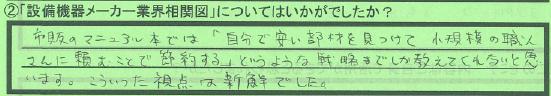 ②「設備機器メーカー業界相関図」についてはいかがでしたか？
市販のマニュアル本では「自分で安い部材を見つけて 小規模の職人
さんに頼むことで節約する」というような戦略までしか教えてくれないと思
います。こういった視点は新鮮でした。